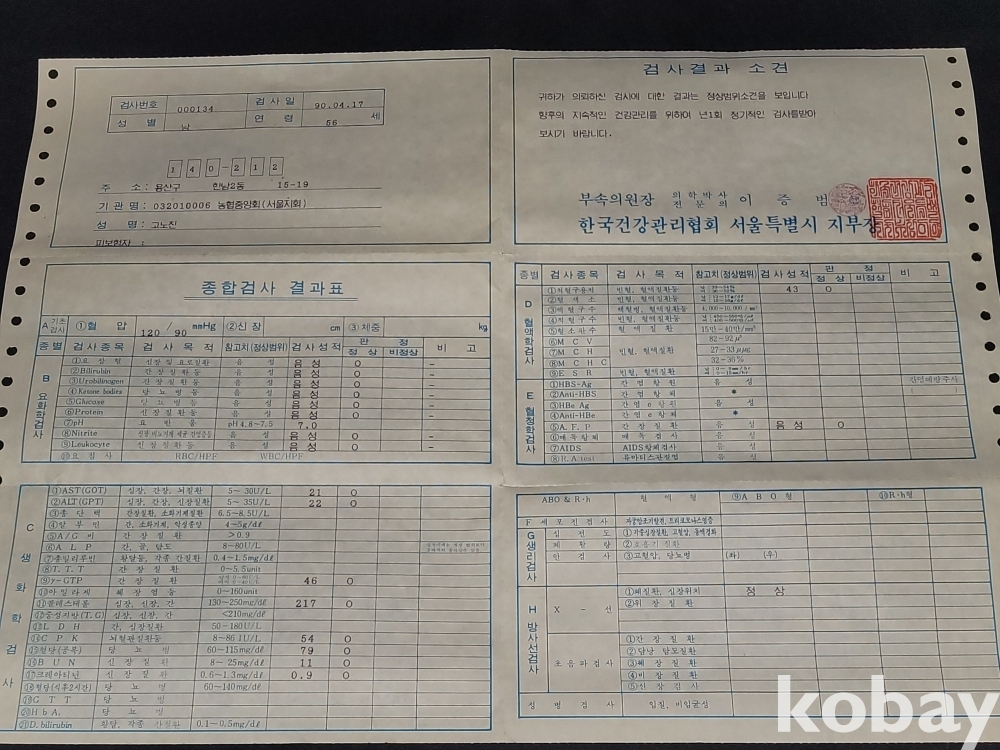 검사번호 000134 검 사 일 90.04.17
성 별 남 연 령 56 세
1 4 0 - 2 1 2
주 소 : 용산구 한남2동 15-19
기 관 명 : 032010006 농협중앙회(서울지회)
성 명 : 고노진
피보험자 :
검사결과 소견
귀하가 의뢰하신 검사에 대한 결과는 정상범위소견을 보입니다
향후의 지속적인 건강관리를 위하여 년1회 정기적인 검사를받아
보시기 바랍니다.
부속의원장 의학박사 전문의 이 증 범
한국건강관리협회 서울특별시 지부장
종합검사 결과표
A 기초검사 ①혈 압 120 / 90 mmHg ②신 장 cm ③체중 kg
종별 검사종목 검 사 목 적 참고치(정상범위) 검사성적 판 정 비 고
정 상 비정상
B 요화학검사
①요 잠 혈 신장 및 요로질환 음 성 음 성 O -
②Bilirubin 간 장 질 환 등 음 성 음 성 O -
③Urobilinogen 간 장 질 환 등 음 성 음 성 O -
④Ketone bodies 당 뇨 병 등 음 성 음 성 O -
⑤Glucose 당 뇨 병 등 음 성 음 성 O -
⑥Protein 신 장 질 환 등 음 성 음 성 O -
⑦pH 요 반 응 pH 4.8~7.5 7.0
⑧Nitrite 음 성 음 성 O -
⑨Leukocyte 신장질환 등 음 성 음 성 O -
⑩요 검 사 RBC/HPF WBC/HPF
C 생화학검사
①AST(GOT) 심장, 간장, 뇌질환 5~ 30U/L 21 O
②ALT(GPT) 심장, 간장, 신장질환 5~ 35U/L 22 O
③총 단 백 간장질환, 소화기계질환 6.5~8.5U/L
④알 부 민 간, 소화기계, 악성종양 4~5g/dℓ
⑤A/G 비 간 장 질 환 >0.9
⑥A L P 간, 골, 담도 8~80U/L
⑦총빌리루빈 황달등, 각종 간질환 0.4~1.5mg/dℓ
⑧T.T.T 간 장 질 환 0~5.5unit
⑨γ-GTP 간 장 질 환 46 O
⑩아밀라제 췌 장 염 등 0~160unit
⑪콜레스테롤 심장, 신장, 간 130~250mg/dℓ 217 O
⑫중성지방(T.G) 심장, 신장, 간 <210mg/dℓ
⑬L D H 간, 심장질환 50~180U/L
⑭C P K 뇌혈관질환등 8~86.1U/L 54 O
⑮혈당(공복) 당 뇨 병 60~115mg/dℓ 79 O
⑯B U N 신 장 질 환 8~ 25mg/dℓ 11 O
⑰크레아티닌 신 장 질 환 0.6~1.3mg/dℓ 0.9 O
⑱혈당(식후2시간) 당 뇨 병 60~140mg/dℓ
⑲G T T 당 뇨 병
⑳H b A₁ 당 뇨 병
㉑D. bilirubin 황달, 각종 간질환 0.1~0.5mg/dℓ
종별 검사종목 검 사 목 적 참고치(정상범위) 검사성적 판 정 비 고
정 상 비정상
D 혈액학검사
①적혈구용적 빈혈, 혈액질환등 43 O
②혈 색 소 빈혈, 혈액질환등
③백 혈 구 수 백혈병, 혈액질환등 4,000~10,000/㎣
④적 혈 구 수 빈혈, 혈액질환등
⑤혈 소 판 수 혈 액 질 환 15만~40만/㎣
⑥M C V 빈혈, 혈액질환 82~92μ³
⑦M C H 27~33μμg
⑧M C H C 32~36%
⑨E S R 빈혈, 혈액질환
E 혈청학검사
①HBS-Ag 간 염 항 원 음 성 간염예방주사
②Anti-HBS 간 염 항 체 *
③HBe Ag 간 염 e 항 원 음 성
④Anti-HBe 간 염 e 항 체 *
⑤A. F. P 간 장 질 환 음 성 음 성 O
⑥매독항체 매 독 검 사 음 성
⑦AIDS AIDS항체검사 음 성
⑧R.A.test 류마티스관절염 음 성
ABO & R·h 혈 액 형 ⑨A B O 형 ⑩R·h형
F 세포진검사 자궁암조기발견, 트리코모나스염증
G 생리검사
심 전 도 ①각종심장질환, 고혈압, 동맥경화
폐 활 량 ②호흡기질환
안 검 사 ③고혈압, 당뇨병 (좌) (우)
H 방사선검사
X - 선 ①폐질환, 심장위치 정 상
②위 장 질 환
초음파검사 ①간 장 질 환
②담낭 담도질환
③췌 장 질 환
④비 장 질 환
⑤신 장 검 사
성 병 검 사 임질, 비임균성
kobay